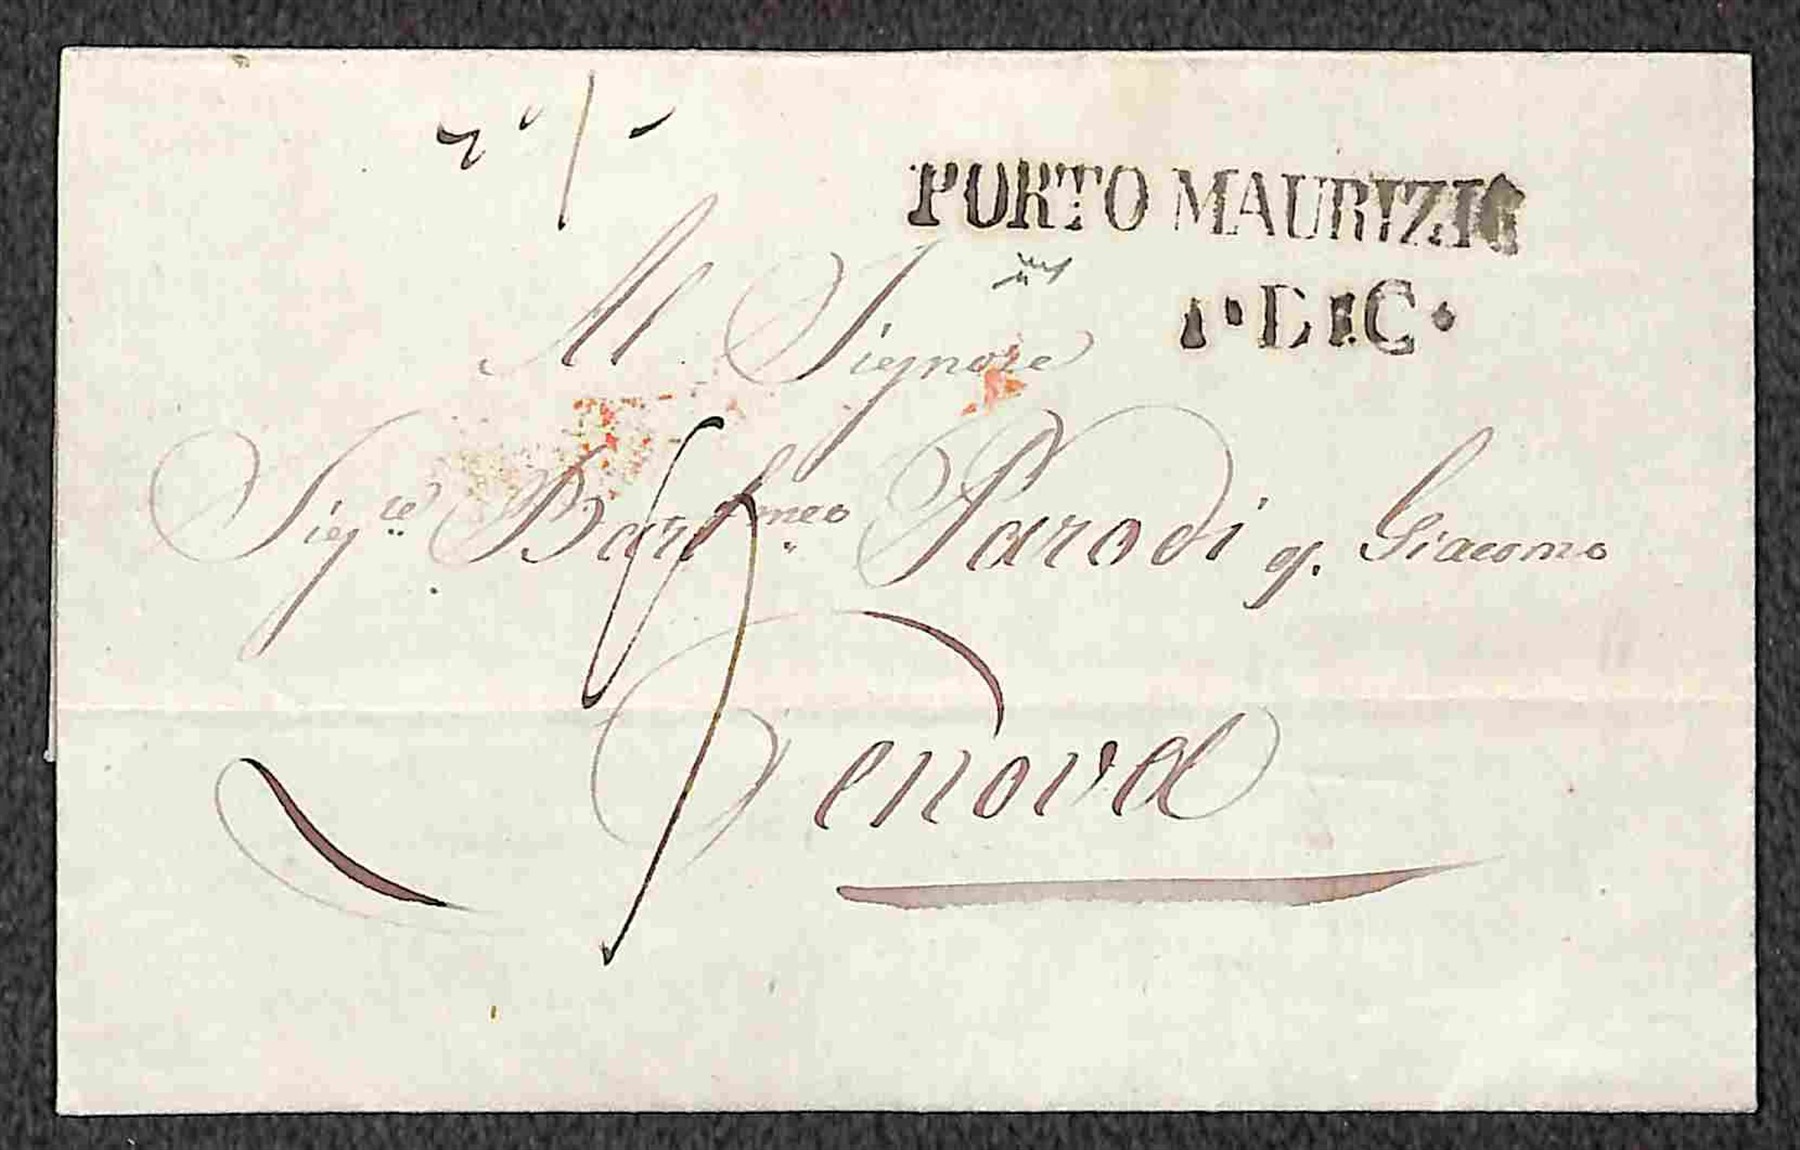 PORTO MAURIZIO
1 · DEC ·
Al Signore
Sig.re Bartmeo Parodi q. Giacomo
Genova